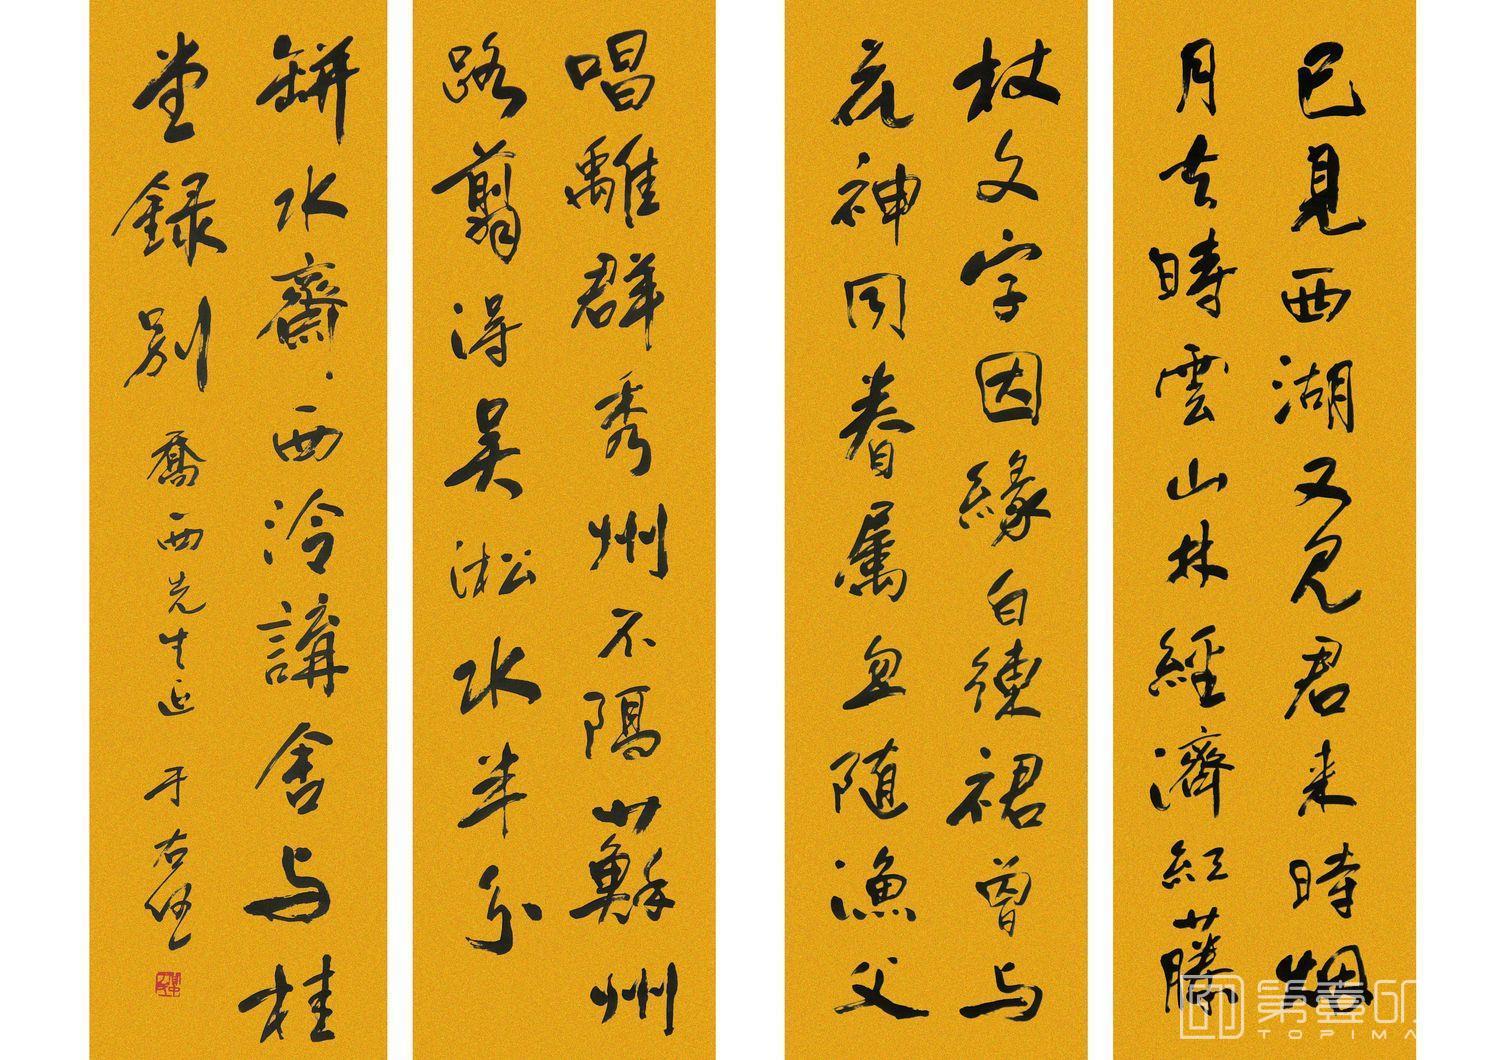 已見西湖又見君来時烟
月去時雲山林經濟紅藤
杖文字因緣白練裙曾与
花神同眷属忽随漁父
唱離群秀州不隔蘇州
路翦得吴淞水半分
缾水齋西泠講舍与桂
堂録别 喬西先生正 于右任
第壹印
TOPIMA